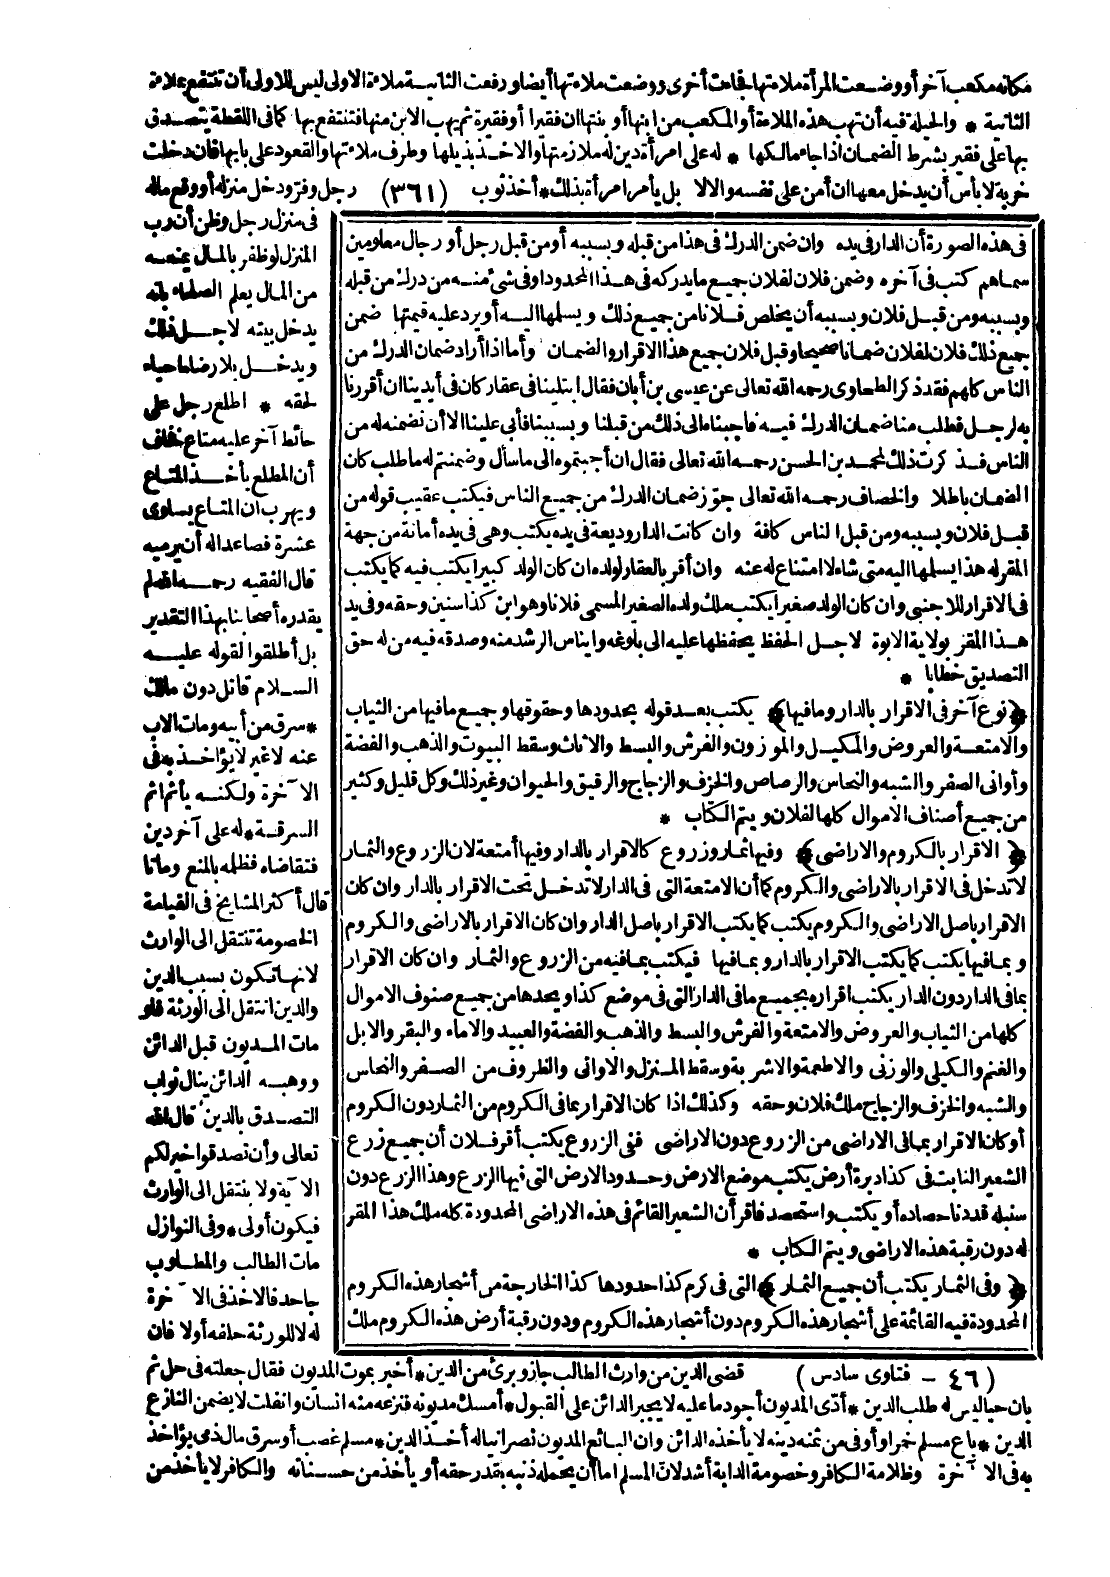 مكانه مكعب آخر أو وضعت المرأة ملاءتها فجاءت أخرى ووضعت ملاءتها أيضا ورفعت الثانية ملاءة الاولى ليس للاولى أن تنتفع بملاءة
الثانية * والحيلة فيه أن تهب هذه الملاءة أو المكعب من ابنها أو بنتها ان فقيرا أو فقيرة ثم يهب الابن منها فتنتفع بها كما فى اللقطة يتصدق
بها على فقير بشرط الضمان اذا جاء مالكها * له على امرأة دين له ملازمتها والاخذ بذيلها وطرف ملاءتها والقعود على بابها فان دخلت
خربة لا بأس أن يدخل معها ان أمن على نفسه والا لا بل يأمر امرأة بذلك * أخذ ثوب (٣٦١) رجل وفر ودخل منزله أو وقع ماله
فى منزل رجل وظن أن رب
المنزل لو ظفر بالمال يمنعه
من المال يعلم الصلحاء بانه
يدخل بيته لاجل ذلك
ويدخل بلا رضا صاحبه
لحقه * اطلع رجل على
حائط آخر عليه متاع نخاف
أن المطلع يأخذ المتاع
ويهرب ان المتاع يساوى
عشرة فصاعدا له أن يرميه
قال الفقيه رحمه الله لم
يقدره أصحابنا بهذا التقدير
بل أطلقوا لقوله عليه
السلام قاتل دون مالك
* سرق من أبيه ومات الاب
عنه لا غير لا يؤاخذ به فى
الآخرة ولكنه يأثم اثم
السرقة * له على آخر دين
فتقاضاه فظلمه بالمنع وماتا
قال أكثر المشايخ فى القيامة
الخصومة تنتقل الى الوارث
لانها تكون بسبب الدين
والدين انتقل الى الورثة فلو
مات المديون قبل الدائن
ووهبه الدائن ينال ثواب
التصدق بالدين قال الله
تعالى وأن تصدقوا خير لكم
الآية ولا ينتقل الى الوارث
فيكون أولى * وفى النوازل
مات الطالب والمطلوب
جاحد فالاخذ فى الآخرة
له لا للورثة حلفه أولا فان
فى هذه الصورة أن الدار فى يده وان ضمن الدرك فى هذا من قبله وبسببه أو من قبل رجل أو رجال معلومين
سماهم كتب فى آخره وضمن فلان لفلان جميع ما يدركه فى هذا المحدود او فى شئ منه من درك من قبله
وبسببه ومن قبل فلان وبسببه أن يخلص فلانا من جميع ذلك ويسلمها اليه أو يرد عليه قيمتها ضمن
جميع ذلك فلان لفلان ضمانا صحيحا وقبل فلان جميع هذا الاقرار والضمان وأما اذا أراد ضمان الدرك من
الناس كلهم فقد ذكر الطحاوى رحمه الله تعالى عن عيسى بن أبان فقال ابتلينا فى عقار كان فى أيدينا ان أقررنا
به لرجل فطلب منا ضمان الدرك فيه فاجبناه الى ذلك من قبلنا وبسببنا فأبى علينا الا أن نضمنه له من
الناس فذكرت ذلك لمحمد بن الحسن رحمه الله تعالى فقال ان أجبتموه الى ما سأل وضمنتم له ما طلب كان
الضمان باطلا والخصاف رحمه الله تعالى جوّز ضمان الدرك من جميع الناس فيكتب عقيب قوله من
قبل فلان وبسببه ومن قبل الناس كافة وان كانت الدار وديعة فى يده يكتب وهى فى يده أمانة من جهة
المقر له هذا يسلمها اليه متى شاء لا امتناع له عنه وان أقر بالعقار لولده ان كان الولد كبيرا يكتب فيه كما يكتب
فى الاقرار للاجنبى وان كان الولد صغيرا يكتب ملك ولده الصغير المسمى فلانا وهو ابن كذا سنين وحقه وفى يد
هذا المقر بولاية الابوة لاجل الحفظ يحفظها عليه الى بلوغه وايناس الرشد منه وصدقه فيه من له حق
التصديق خطابا *
﴿نوع آخر فى الاقرار بالدار وما فيها﴾ يكتب بعد قوله بحدودها وحقوقها وجميع ما فيها من الثياب
والامتعة والعروض والمكيل والموزون والفرش والبسط والاثاث وسقط البيوت والذهب والفضة
وأوانى الصفر والشبه والنحاس والرصاص والخزف والزجاج والرقيق والحيوان وغير ذلك وكل قليل وكثير
من جميع أصناف الاموال كلها لفلان ويتم الكتاب *
﴿الاقرار بالكروم والاراضى﴾ وفيها ثمار وزروع كالاقرار بالدار وفيها أمتعة لان الزروع والثمار
لا تدخل فى الاقرار بالاراضى والكروم كما أن الامتعة التى فى الدار لا تدخل تحت الاقرار بالدار وان كان
الاقرار باصل الاراضى والكروم يكتب كما يكتب الاقرار باصل الدار وان كان الاقرار بالاراضى والكروم
وبما فيها يكتب كما يكتب الاقرار بالدار وبما فيها فيكتب بما فيه من الزروع والثمار وان كان الاقرار
بما فى الدار دون الدار يكتب اقراره بجميع ما فى الدار التى فى موضع كذا ويحدها من جميع صنوف الاموال
كلها من الثياب والعروض والامتعة والفرش والبسط والذهب والفضة والعبيد والاماء والبقر والابل
والغنم والكيلى والوزنى والاطعمة والاشربة وسقط المنزل والاوانى والظروف من الصفر والنحاس
والشبه والخزف والزجاج ملك فلان وحقه وكذلك اذا كان الاقرار بما فى الكروم من الثمار دون الكروم
أو كان الاقرار بما فى الاراضى من الزروع دون الاراضى ففى الزروع يكتب أقر فلان أن جميع زرع
الشعير النابت فى كذا دبرة أرض يكتب موضع الارض وحدود الارض التى فيها الزرع وهذا الزرع دون
سنبله قد دنا حصاده أو يكتب واستحصد فاقر أن الشعير القائم فى هذه الاراضى المحدودة كله ملك هذا المقر
له دون رقبة هذه الاراضى ويتم الكتاب *
﴿وفى الثمار يكتب أن جميع الثمار﴾ التى فى كرم كذا حدودها كذا الخارجة من أشجار هذه الكروم
المحدودة فيه القائمة على أشجار هذه الكروم دون أشجار هذه الكروم ودون رقبة أرض هذه الكروم ملك
(٤٦ - فتاوى سادس) قضى الدين من وارث الطالب جاز وبرئ من الدين * أخبر بموت المديون فقال جعلته فى حل ثم
بان حيا ليس له طلب الدين * أدّى المديون أجود ما عليه لا يجبر الدائن على القبول * أمسك مديونه فنزعه منه انسان وانفلت لا يضمن النازع
الدين * باع مسلم خمرا وأوفى من ثمنه دينه لا يأخذه الدائن وان البائع المديون نصرانيا له أخذ الدين * مسلم غصب أو سرق مال ذمى يؤاخذ
به فى الآخرة وظلامة الكافر وخصومة الدابة أشد لان المسلم اما أن يحمله ذنبه بقدر حقه أو يأخذ من حسناته والكافر لا يأخذ من